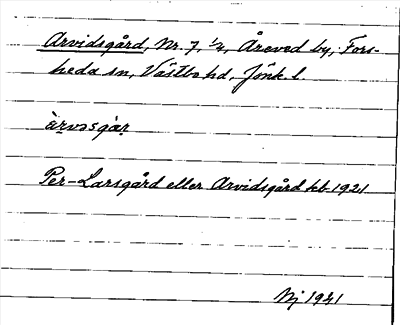 Arvidsgård, Nr. 7, ½, Åreved by, Fors-
heda sn, Västbo hd, Jönk. l
àrvəsgàr
Per-Larsgård eller Arvidsgård hb 1921
Nj 1941